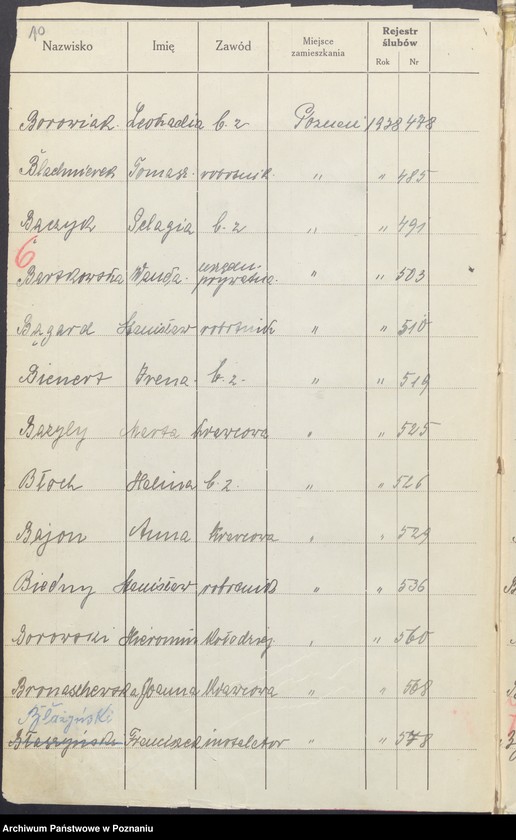 10
Nazwisko Imię Zawód Miejsce zamieszkania Rejestr ślubów Rok Nr
Borowiak Leokadia b. z Poznań 1938 478
Błachnierek Tomasz robotnik " " 485
Bączyk Pelagia b. z " " 491
6
Bartkowska Wanda urzędn. prywatna " " 503
Bągard Stanisław robotnik " " 510
Bienert Irena b. z. " " 519
Bazyly Marta krawcowa " " 525
Błoch Helina b z. " " 526
Bajon Anna krawcowa " " 529
Biedny Stanisław robotnik " " 536
Borowski Hieronim kołodziej " " 560
Bronaschewska Joanna krawcowa " " 568
Błażyński
Błaszyński Franciszek instalator " " 578
Archiwum Państwowe w Poznaniu